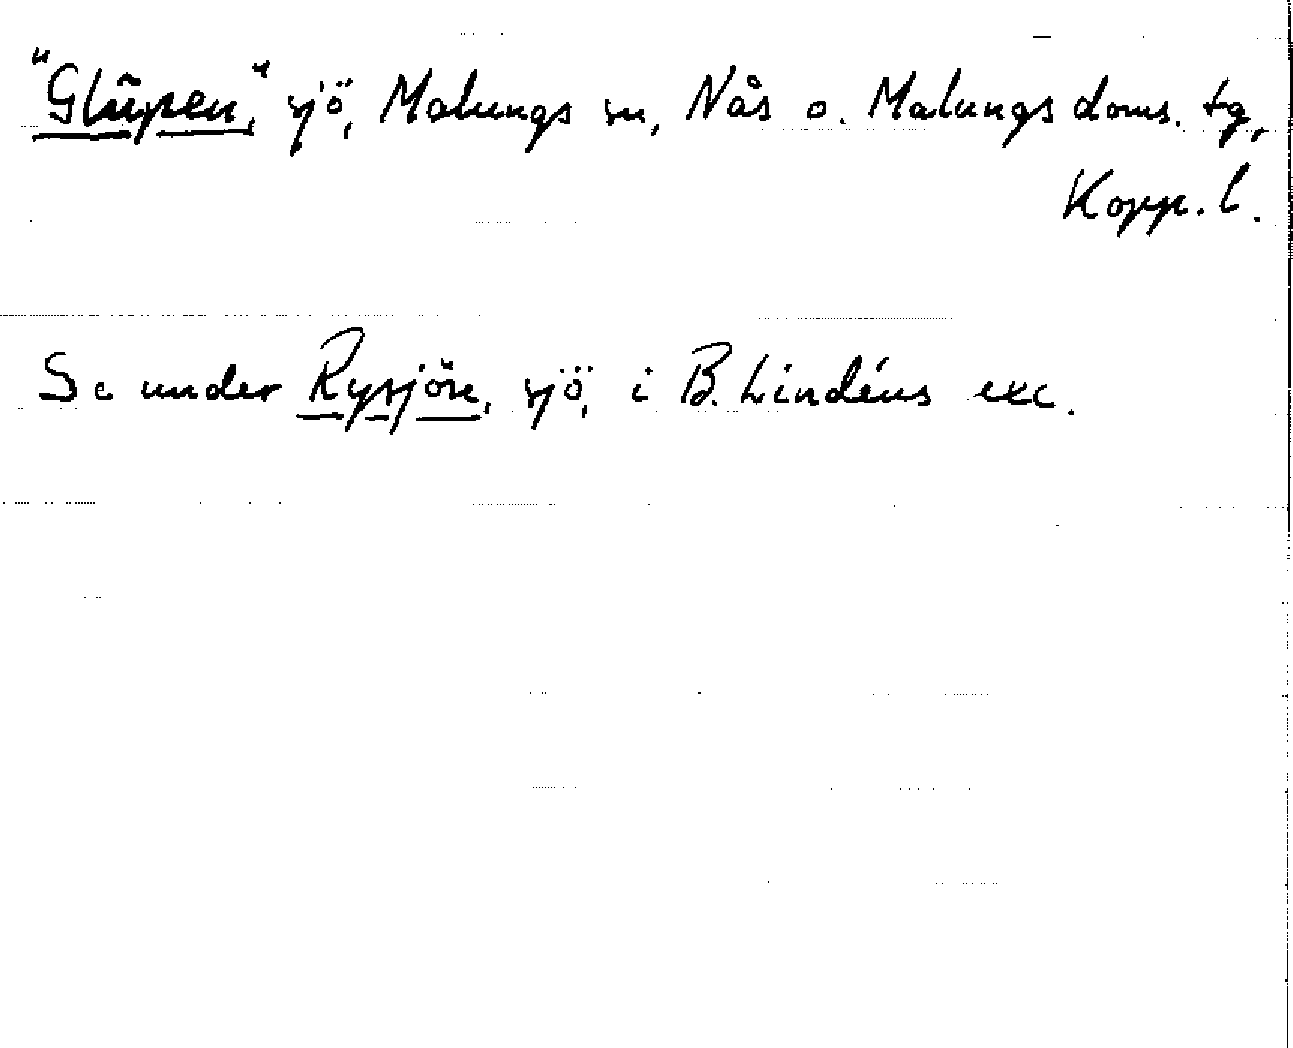 "Glūpen", sjö, Malungs sn, Nås o. Malungs doms. tg,
Kopp. l.
Se under Rysjön, sjö, i B. Lindéns exc.